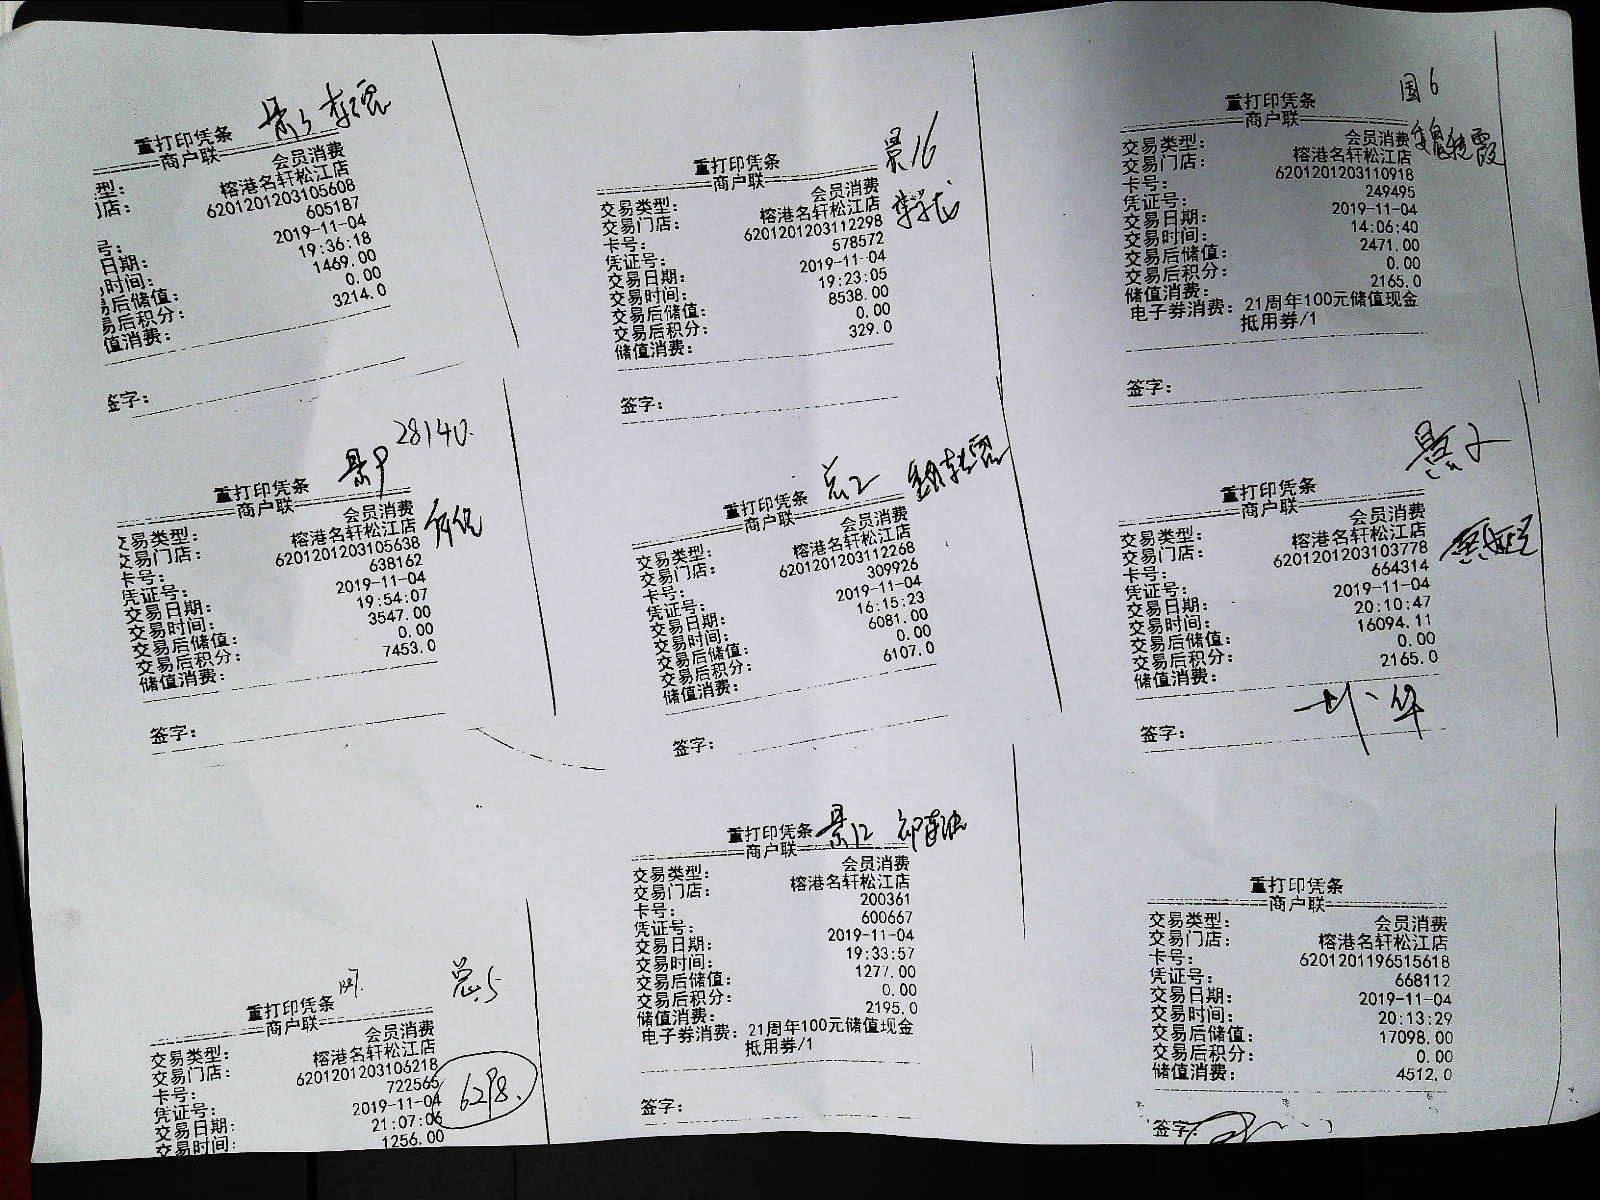 重打印凭条
商户联
型: 会员消费
门店: 榕港名轩松江店
6201201203105608
号: 605187
日期: 2019-11-04
时间: 19:36:18
易后储值: 1469.00
易后积分: 0.00
值消费: 3214.0
签字:
景16
重打印凭条
商户联
交易类型: 会员消费
交易门店: 榕港名轩松江店
卡号: 6201201203112298
凭证号: 578572
交易日期: 2019-11-04
交易时间: 19:23:05
交易后储值: 8538.00
交易后积分: 0.00
储值消费: 329.0
签字:
国6
重打印凭条
商户联
交易类型: 会员消费
交易门店: 榕港名轩松江店
卡号: 6201201203110918
凭证号: 249495
交易日期: 2019-11-04
交易时间: 14:06:40
交易后储值: 2471.00
交易后积分: 0.00
储值消费: 2165.0
电子券消费: 21周年100元储值现金
抵用券/1
签字:
28140
景9
重打印凭条
商户联
交易类型: 会员消费
交易门店: 榕港名轩松江店
卡号: 6201201203105638
凭证号: 638162
交易日期: 2019-11-04
交易时间: 19:54:07
交易后储值: 3547.00
交易后积分: 0.00
储值消费: 7453.0
签字:
总2
重打印凭条
商户联
交易类型: 会员消费
交易门店: 榕港名轩松江店
卡号: 6201201203112268
凭证号: 309926
交易日期: 2019-11-04
交易时间: 16:15:23
交易后储值: 6081.00
交易后积分: 0.00
储值消费: 6107.0
签字:
景2
重打印凭条
商户联
交易类型: 会员消费
交易门店: 榕港名轩松江店
卡号: 6201201203103778
凭证号: 664314
交易日期: 2019-11-04
交易时间: 20:10:47
交易后储值: 16094.11
交易后积分: 0.00
储值消费: 2165.0
签字:
总5
重打印凭条
商户联
交易类型: 会员消费
交易门店: 榕港名轩松江店
卡号: 6201201203106218
凭证号: 722565
交易日期: 2019-11-04
交易时间: 21:07:06
1256.00
6298.
景12
重打印凭条
商户联
交易类型: 会员消费
交易门店: 榕港名轩松江店
卡号: 200361
凭证号: 600667
交易日期: 2019-11-04
交易时间: 19:33:57
交易后储值: 1277.00
交易后积分: 0.00
储值消费: 2195.0
电子券消费: 21周年100元储值现金
抵用券/1
签字:
重打印凭条
商户联
交易类型: 会员消费
交易门店: 榕港名轩松江店
卡号: 6201201196515618
凭证号: 668112
交易日期: 2019-11-04
交易时间: 20:13:29
交易后储值: 17098.00
交易后积分: 0.00
储值消费: 4512.0
签字: